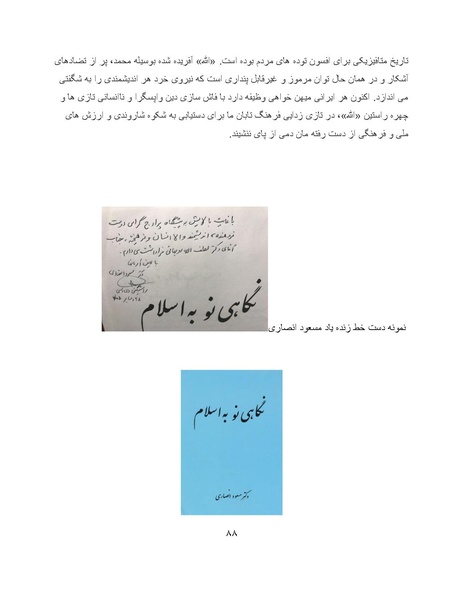 تاریخ متافیزیکی برای افسون توده های مردم بوده است. «الله» آفریده شده بوسیله محمد، پر از تضادهای
آشکار و در همان حال توان مرموز و غیرقابل پنداری است که نیروی خرد هر اندیشمندی را به شگفتی
می اندازد. اکنون هر ایرانی میهن خواهی وظیفه دارد با فاش سازی دین واپسگرا و ناانسانی تازی ها و
چهره راستین «الله»، در تازی زدایی فرهنگ تابان ما برای دستیابی به شکوه شاروندی و ارزش های
ملی و فرهنگی از دست رفته مان دمی از پای ننشیند.
نگاهی نو به اسلام
نمونه دست خط زنده یاد مسعود انصاری
نگاهی نو به اسلام
دکتر مسعود انصاری
۸۸